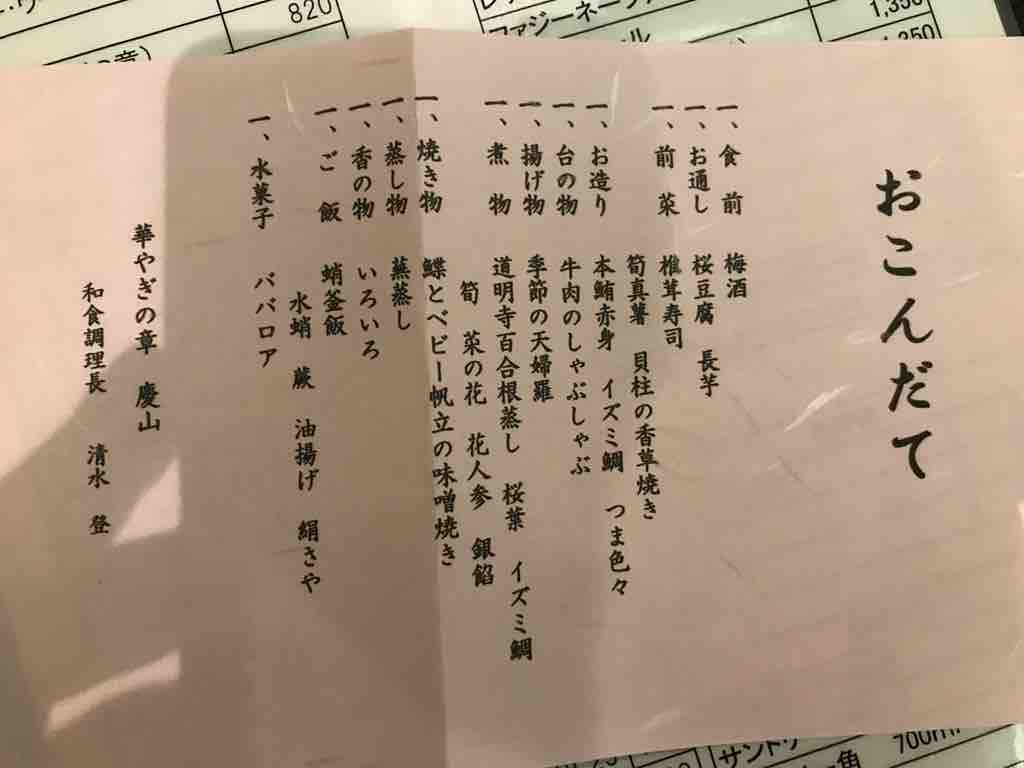 おこんだて
一、食前 梅酒
一、お通し 桜豆腐 長芋
一、前菜 椎茸寿司
筍真薯 貝柱の香草焼き
一、お造り 本鮪赤身 イズミ鯛 つま色々
一、台の物 牛肉のしゃぶしゃぶ
一、揚げ物 季節の天婦羅
一、煮物 道明寺百合根蒸し 桜葉 イズミ鯛
筍 菜の花 花人参 銀餡
一、焼き物 鰈とベビー帆立の味噌焼き
一、蒸し物 蕪蒸し
一、香の物 いろいろ
一、ご飯 蛸釜飯
水蛸 蕨 油揚げ 絹さや
一、水菓子 ババロア
華やぎの章 慶山
和食調理長 清水 登
820
1,350
1,350
700ml